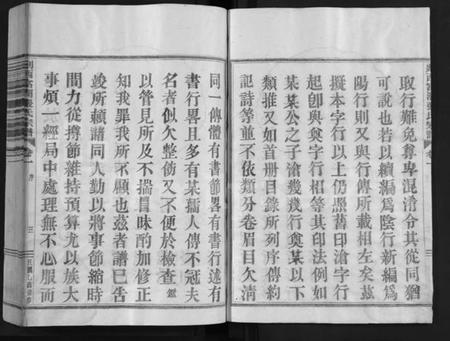 取行難免尊卑混淆令其從同猶
可說也若以續編爲陰行新編爲
陽行則又與行傳所載相左矣茲
擬本字行以上仍照舊印滄字行
起卽與奐字行相等其印法例如
某某公之子滄幾幾行奐某以下
類推又如首册目錄所列序傳約
記詩等並不依類分卷眉目欠清
同一傳體有書節畧有書行述有
書行畧且多有某孺人傳不冠夫
名者似欠整飭又不便於檢查鑑
以管見所及不揣冒昧酌加修正
知我罪我所不顧也茲者譜已告
竣所賴諸同人勤以將事節縮時
間力從撙節維持預算尤以族大
事煩一經局中處理無不心服而
序
三